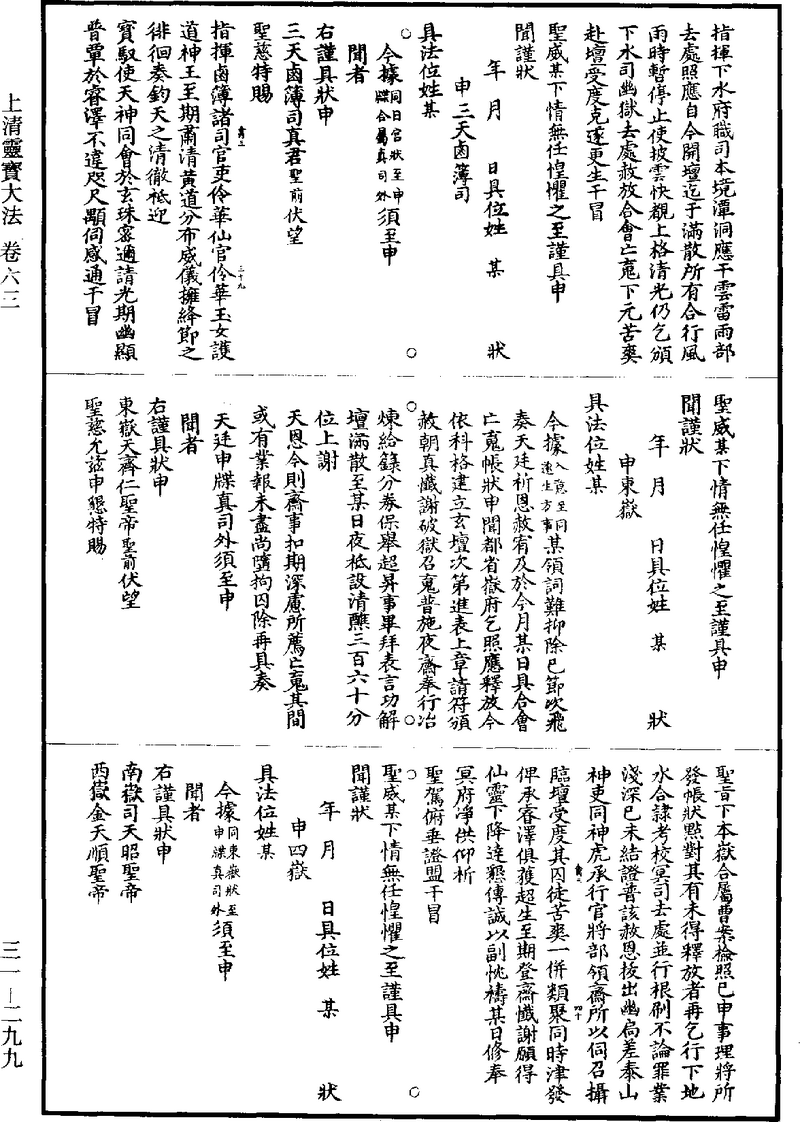 指揮下水府職司本境潭洞應干雲雷雨部
去處照應自今開壇迄于滿散所有合行風
雨時暫停止使披雲快覩上格清光仍乞頒
下水司幽獄去處赦放合會亡䰟下元苦爽
赴壇受度克遂更生干冒
聖威某下情無任惶懼之至謹具申
聞謹狀
年 月 日具位姓 某 狀
申三天鹵簿司
具法位姓某
今據同日官狀至申牒合屬真司外須至申
聞者
右謹具狀申
三天鹵簿司真君聖前伏望
聖慈特賜
指揮鹵簿諸司官吏伶華仙官伶華玉女護
道神王至期肅清黃道分布威儀擁絳節之
徘徊奏鈞天之清徹柢迎
寶馭使天神同會於玄珠密邇請光期幽顯
普覃於睿澤不違咫尺顒伺感通干冒
聖威某下情無任惶懼之至謹具申
聞謹狀
年 月 日具位姓 某 狀
申東嶽
具法位姓某
今據入意至同進生方事某領詞難抑除已節次飛
奏天廷祈恩赦宥及於今月某日具合會
亡䰟帳狀申聞都省嶽府乞照應釋放今
依科格建立玄壇次第進表上章請符頒
赦朝真懺謝破獄召䰟普施夜齋奉行冶
煉給籙分券保舉超昇事畢拜表言功解
壇滿散至某日夜柢設清醮三百六十分
位上謝
天恩今則齋事扣期深慮所薦亡䰟其間
或有業報未盡尚墮拘囚除再具奏
天廷申牒真司外須至申
聞者
右謹具狀申
東嶽天齊仁聖帝聖前伏望
聖慈允茲申懇特賜
聖旨下本嶽合屬曹案檢照已申事理將所
發帳狀㸃對其有未得釋放者再乞行下地
水合隷考校冥司去處並行根刷不論罪業
淺深已未結證普該赦恩拔出幽扃差泰山
神吏同神虎承行官將部領齋所以伺召攝
臨壇受度其囚徒苦爽一併類聚同時津發
俾承睿澤俱獲超生至期登齋懺謝願得
仙靈下降達懇傳誠以副忱禱某日修奉
冥府凈供仰祈
聖駕俯垂證盟干冒
聖威某下情無任惶懼之至謹具申
聞謹狀
年 月 日具位姓 某 狀
申四嶽
具法位姓某
今據同東嶽狀至申牒真司外須至申
聞者
右謹具狀申
南嶽司天昭聖帝
西嶽金天順聖帝
上清靈寶大法 卷六三
三一—二九九
三十九
四十